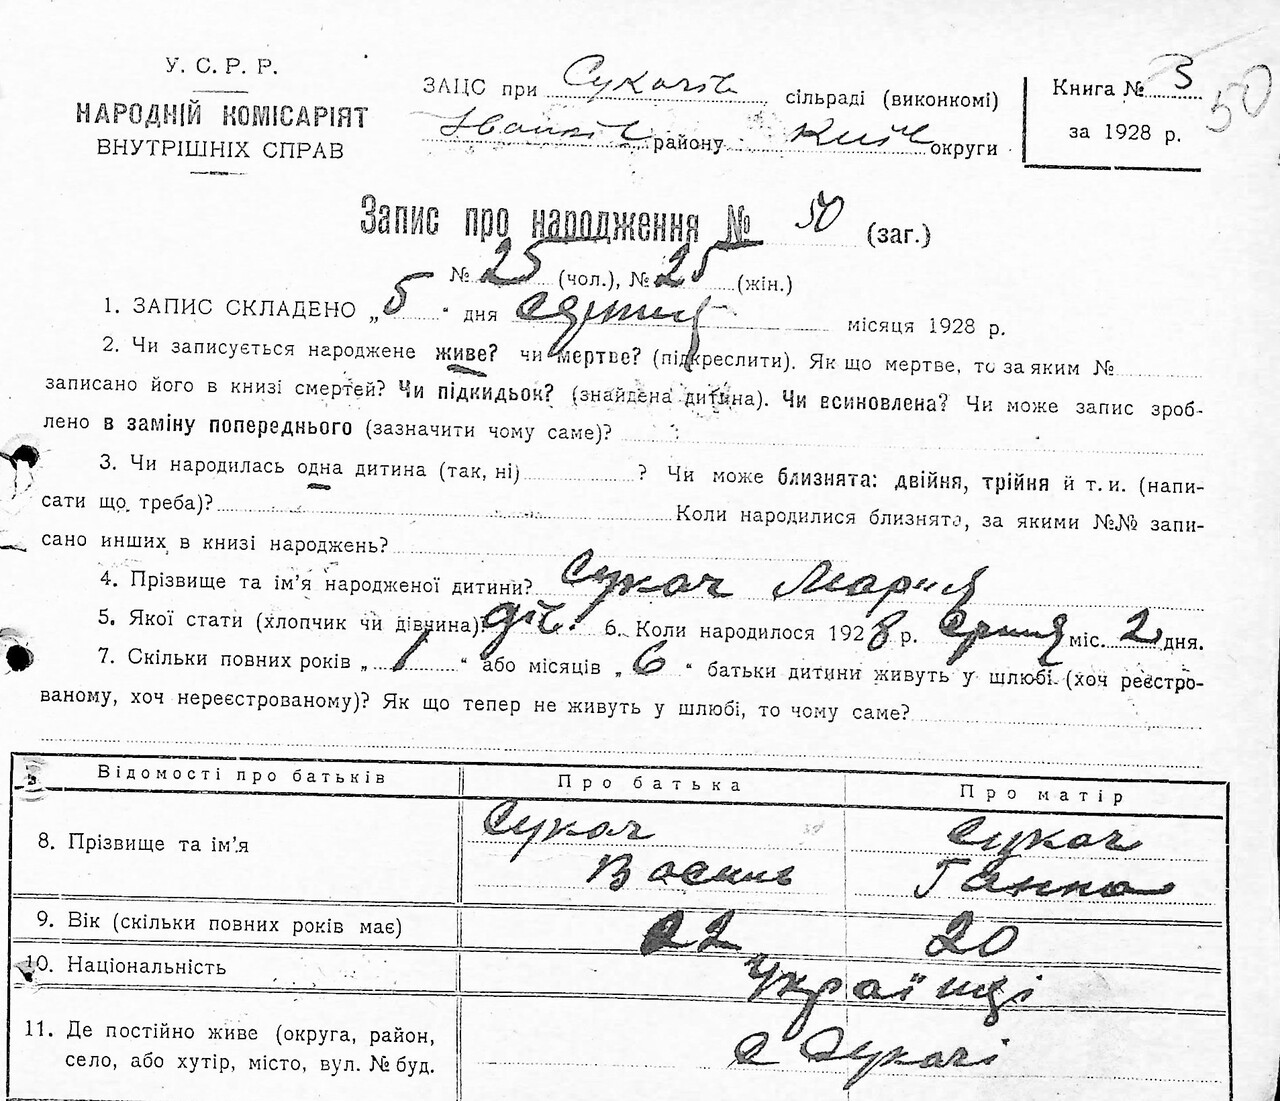 У. С. Р. Р.
НАРОДНІЙ КОМІСАРІЯТ
ВНУТРІШНІХ СПРАВ
ЗАЦС при Сукачів сільраді (виконкомі)
району Київ округи
Книга № 3
за 1928 р.
50
Запис про народження № 50 (заг.)
№ 25 (чол.), № 25 (жін.)
1. ЗАПИС СКЛАДЕНО „ 5 " дня серпня місяця 1928 р.
2. Чи записується народжене живе? чи мертве? (підкреслити). Як що мертве, то за яким №
записано його в книзі смертей? Чи підкидьок? (знайдена дитина). Чи всиновлена? Чи може запис зроб-
лено в заміну попереднього (зазначити чому саме)?
3. Чи народилась одна дитина (так, ні) ? Чи може близнята: двійня, трійня й т. и. (напи-
сати що треба)? Коли народилися близнята, за якими №№ запи-
сано инших в книзі народжень?
4. Прізвище та ім'я народженої дитини? Сукач Мария
5. Якої стати (хлопчик чи дівчина) дів. 6. Коли народилося 1928 р. Серпня міс. 2 дня.
7. Скільки повних років „ 1 " або місяців „ 6 " батьки дитини живуть у шлюбі (хоч реєстро-
ваному, хоч нереєстрованому)? Як що тепер не живуть у шлюбі, то чому саме?
Відомості про батьків Про батька Про матір
8. Прізвище та ім'я Сукач Василь Сукач Ганна
9. Вік (скільки повних років має) 22 20
10. Національність Українці
11. Де постійно живе (округа, район, с Сукачі
село, або хутір, місто, вул. № буд.